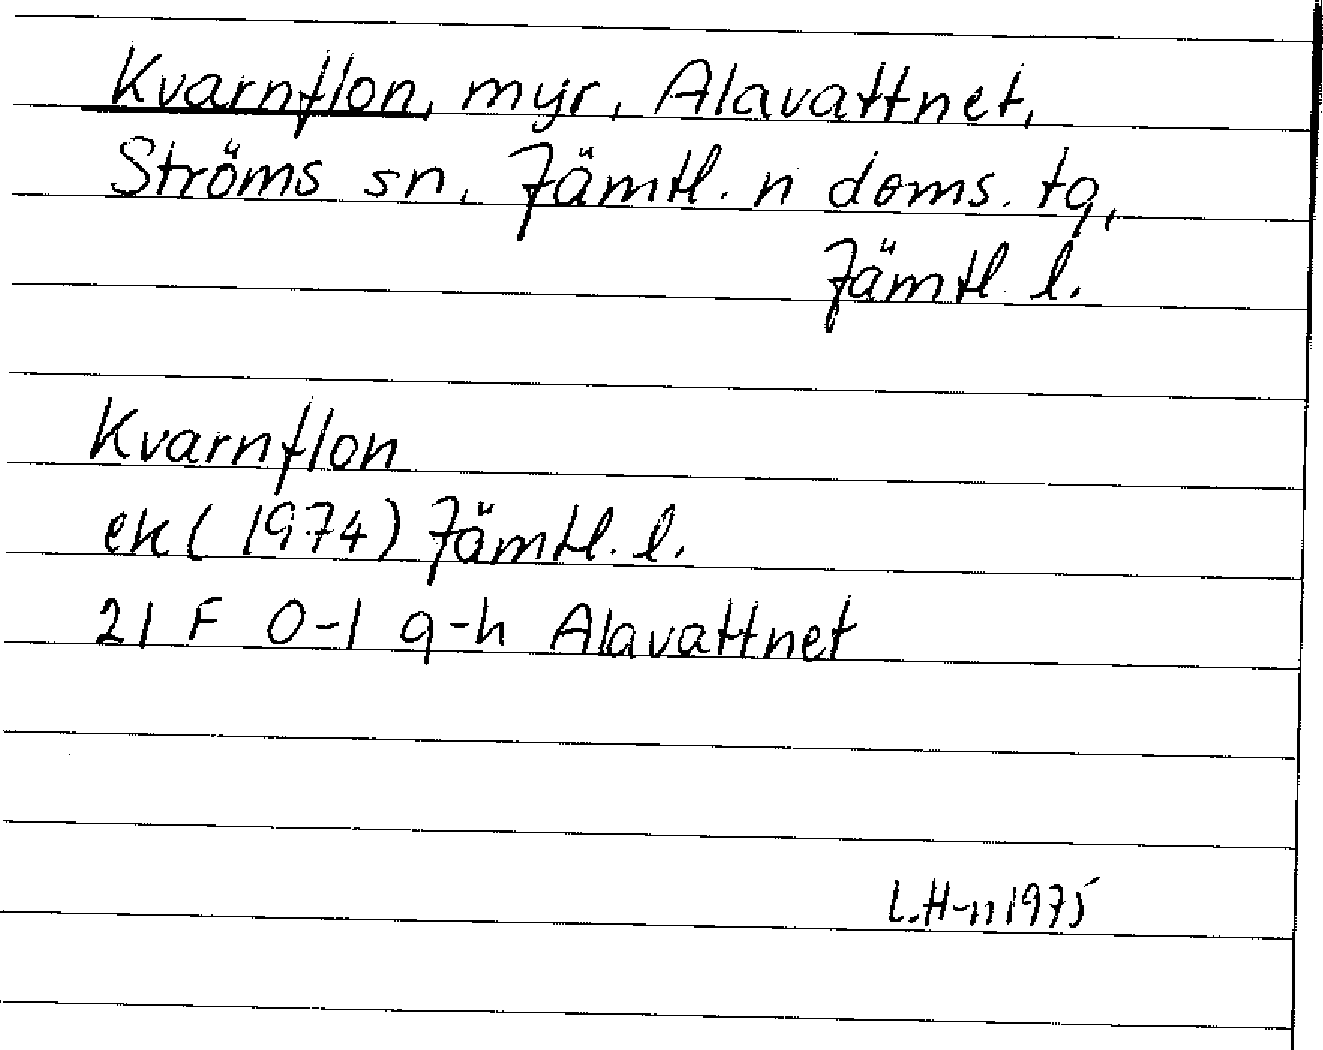 Kvarnflon, myr, Alavattnet,
Ströms sn, Jämtl. n doms. tg,
Jämtl l.
Kvarnflon
ek (1974) Jämtl. l.
21 F 0-1 g-h Alavattnet
L.H-n 1975